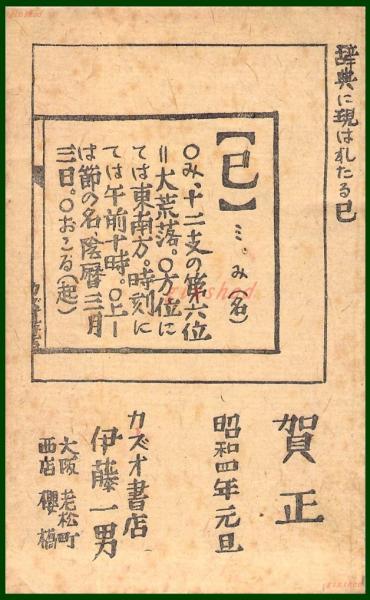 辞典に現はれたる巳
【巳】ミ。み(名)
〇み、十二支の第六位
=大荒落。〇方位に
ては東南方。時刻に
ては午前十時。〇上―
は節の名、陰暦三月
三日。〇おこる(起)
賀正
昭和四年元旦
カズオ書店
伊藤一男
大阪 老松町
西店 櫻橋